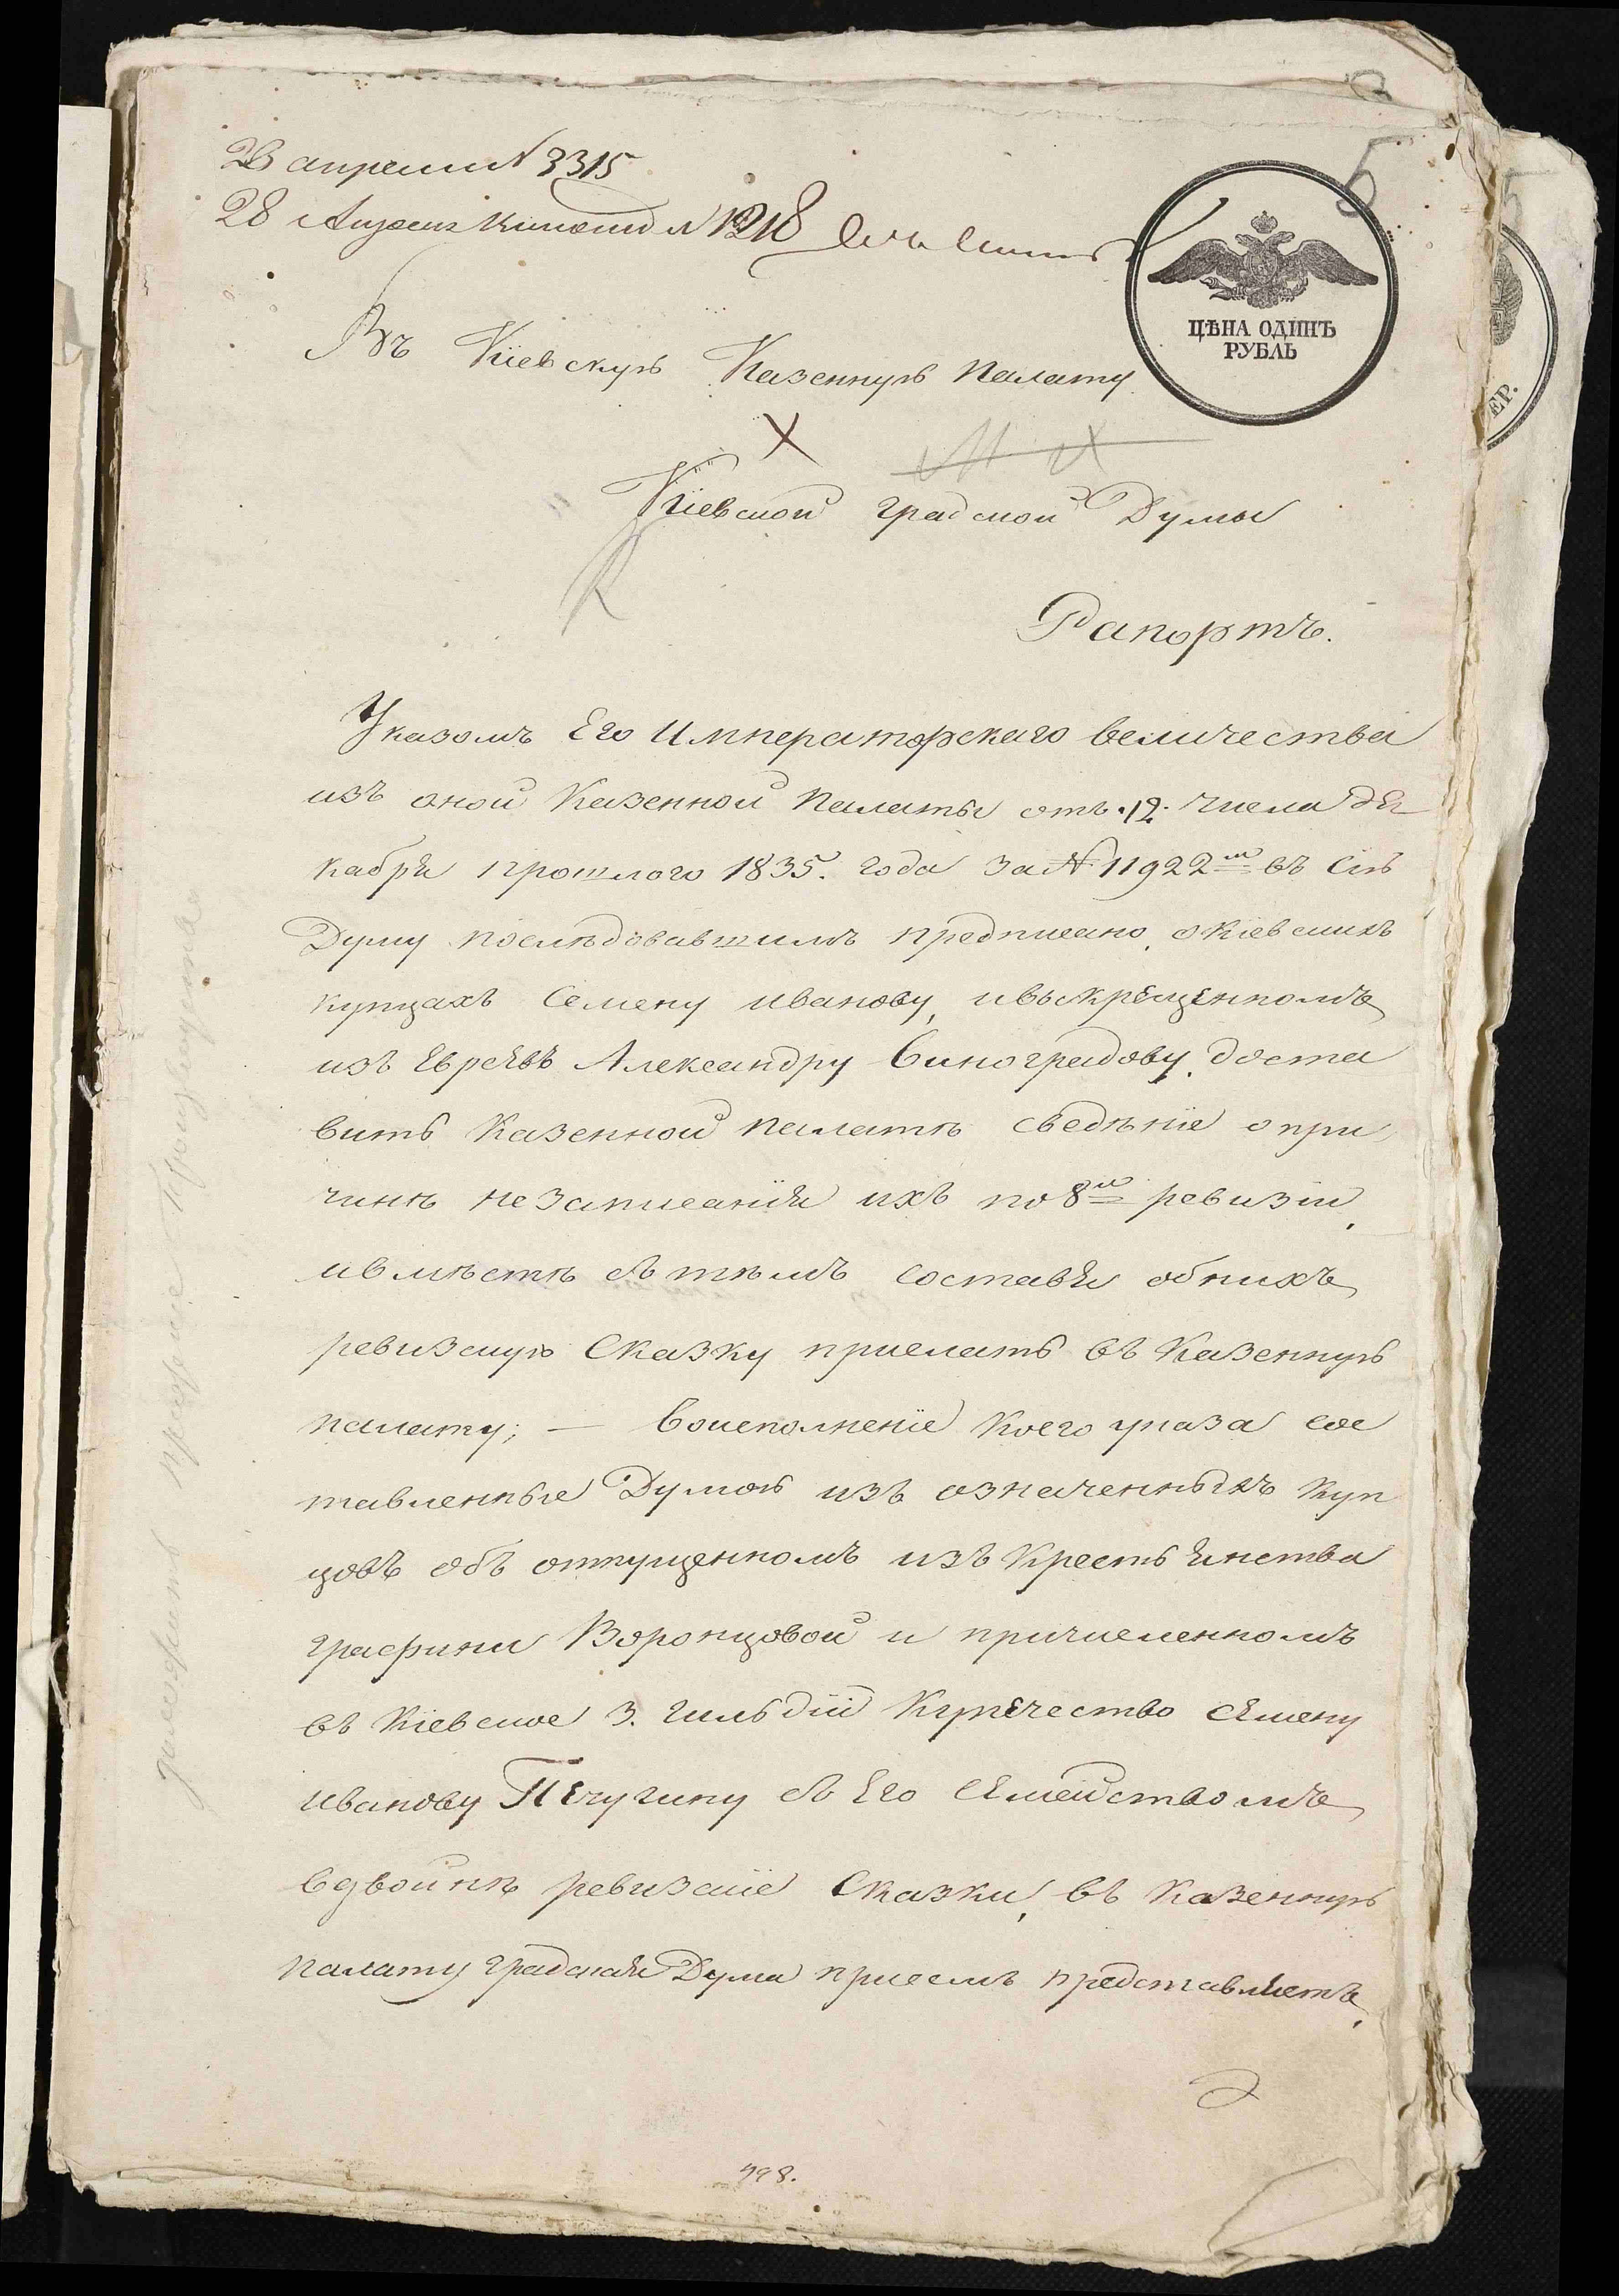 26 апреля № 3315
28 Апреля № 1218
5
ЦѢНА ОДИНЪ
РУБЛЬ
Въ Кіевскую Казенную Палату
Кіевской градской Думы
Рапортъ.
Указомъ Его Императорскаго величества
изъ оной Казенной Палаты отъ 12. числа де
кабря прошлого 1835. года за № 11922м въ сію
Думу последовавшимъ предписано, о Кіевскихъ
купцахъ Семену Иванову, и выкрещенномъ
изъ Евреевъ Александру Виноградову, доста
вить Казенной палатѣ сведѣніе о при
чинѣ незаписанія ихъ по 8й ревизіи,
и вмѣстѣ съ тѣмъ составя обнихъ
ревизскую Сказку прислать въ Казенную
палату; — Воисполненіе коего указа сос
тавленные Думою изъ означенныхъ куп
цовъ объ отпущенномъ изъ крестьянства
графини Воронцовой и причисленномъ
въ Кіевское 3. гильдіи Купечество Семену
Иванову Печугину съ Его Семействомъ
вдвойнѣ ревизскіе Сказки, въ Казенную
палату градская Дума присемъ представляетъ,
798.
ЕР.